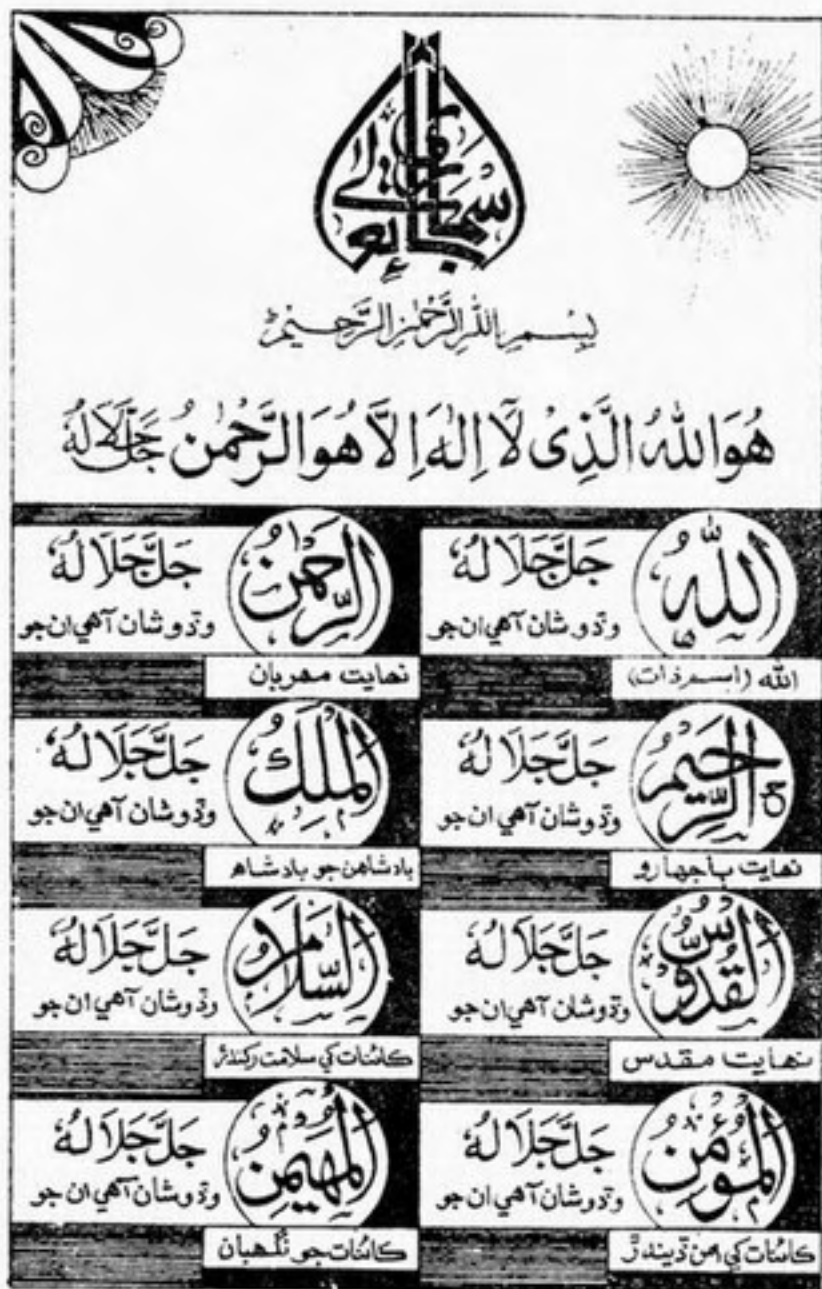 سبحانه تعالى
بِسْمِ اللهِ الرَّحْمٰنِ الرَّحِيْمِ
هُوَاللهُ الَّذِیْ لَآ اِلٰهَ اِلَّا هُوَالرَّحْمٰنُ جَلَّ جَلَالَهُ
اللّٰهُ
جَلَّ جَلَالُهٗ
وڏو شان آهي ان جو
الله (اسم ذات)
الرَّحْمٰنُ
جَلَّ جَلَالُهٗ
وڏو شان آهي ان جو
نهايت مهربان
الرَّحِيْمُ
جَلَّ جَلَالُهٗ
وڏو شان آهي ان جو
نهايت ٻاجهارو
الْمَلِكُ
جَلَّ جَلَالُهٗ
وڏو شان آهي ان جو
بادشاهن جو بادشاهه
الْقُدُّوْسُ
جَلَّ جَلَالُهٗ
وڏو شان آهي ان جو
نهايت مقدس
السَّلَامُ
جَلَّ جَلَالُهٗ
وڏو شان آهي ان جو
ڪائنات کي سلامت رکندڙ
الْمُؤْمِنُ
جَلَّ جَلَالُهٗ
وڏو شان آهي ان جو
ڪائنات کي امن ڏيندڙ
الْمُهَيْمِنُ
جَلَّ جَلَالُهٗ
وڏو شان آهي ان جو
ڪائنات جو نگهبان